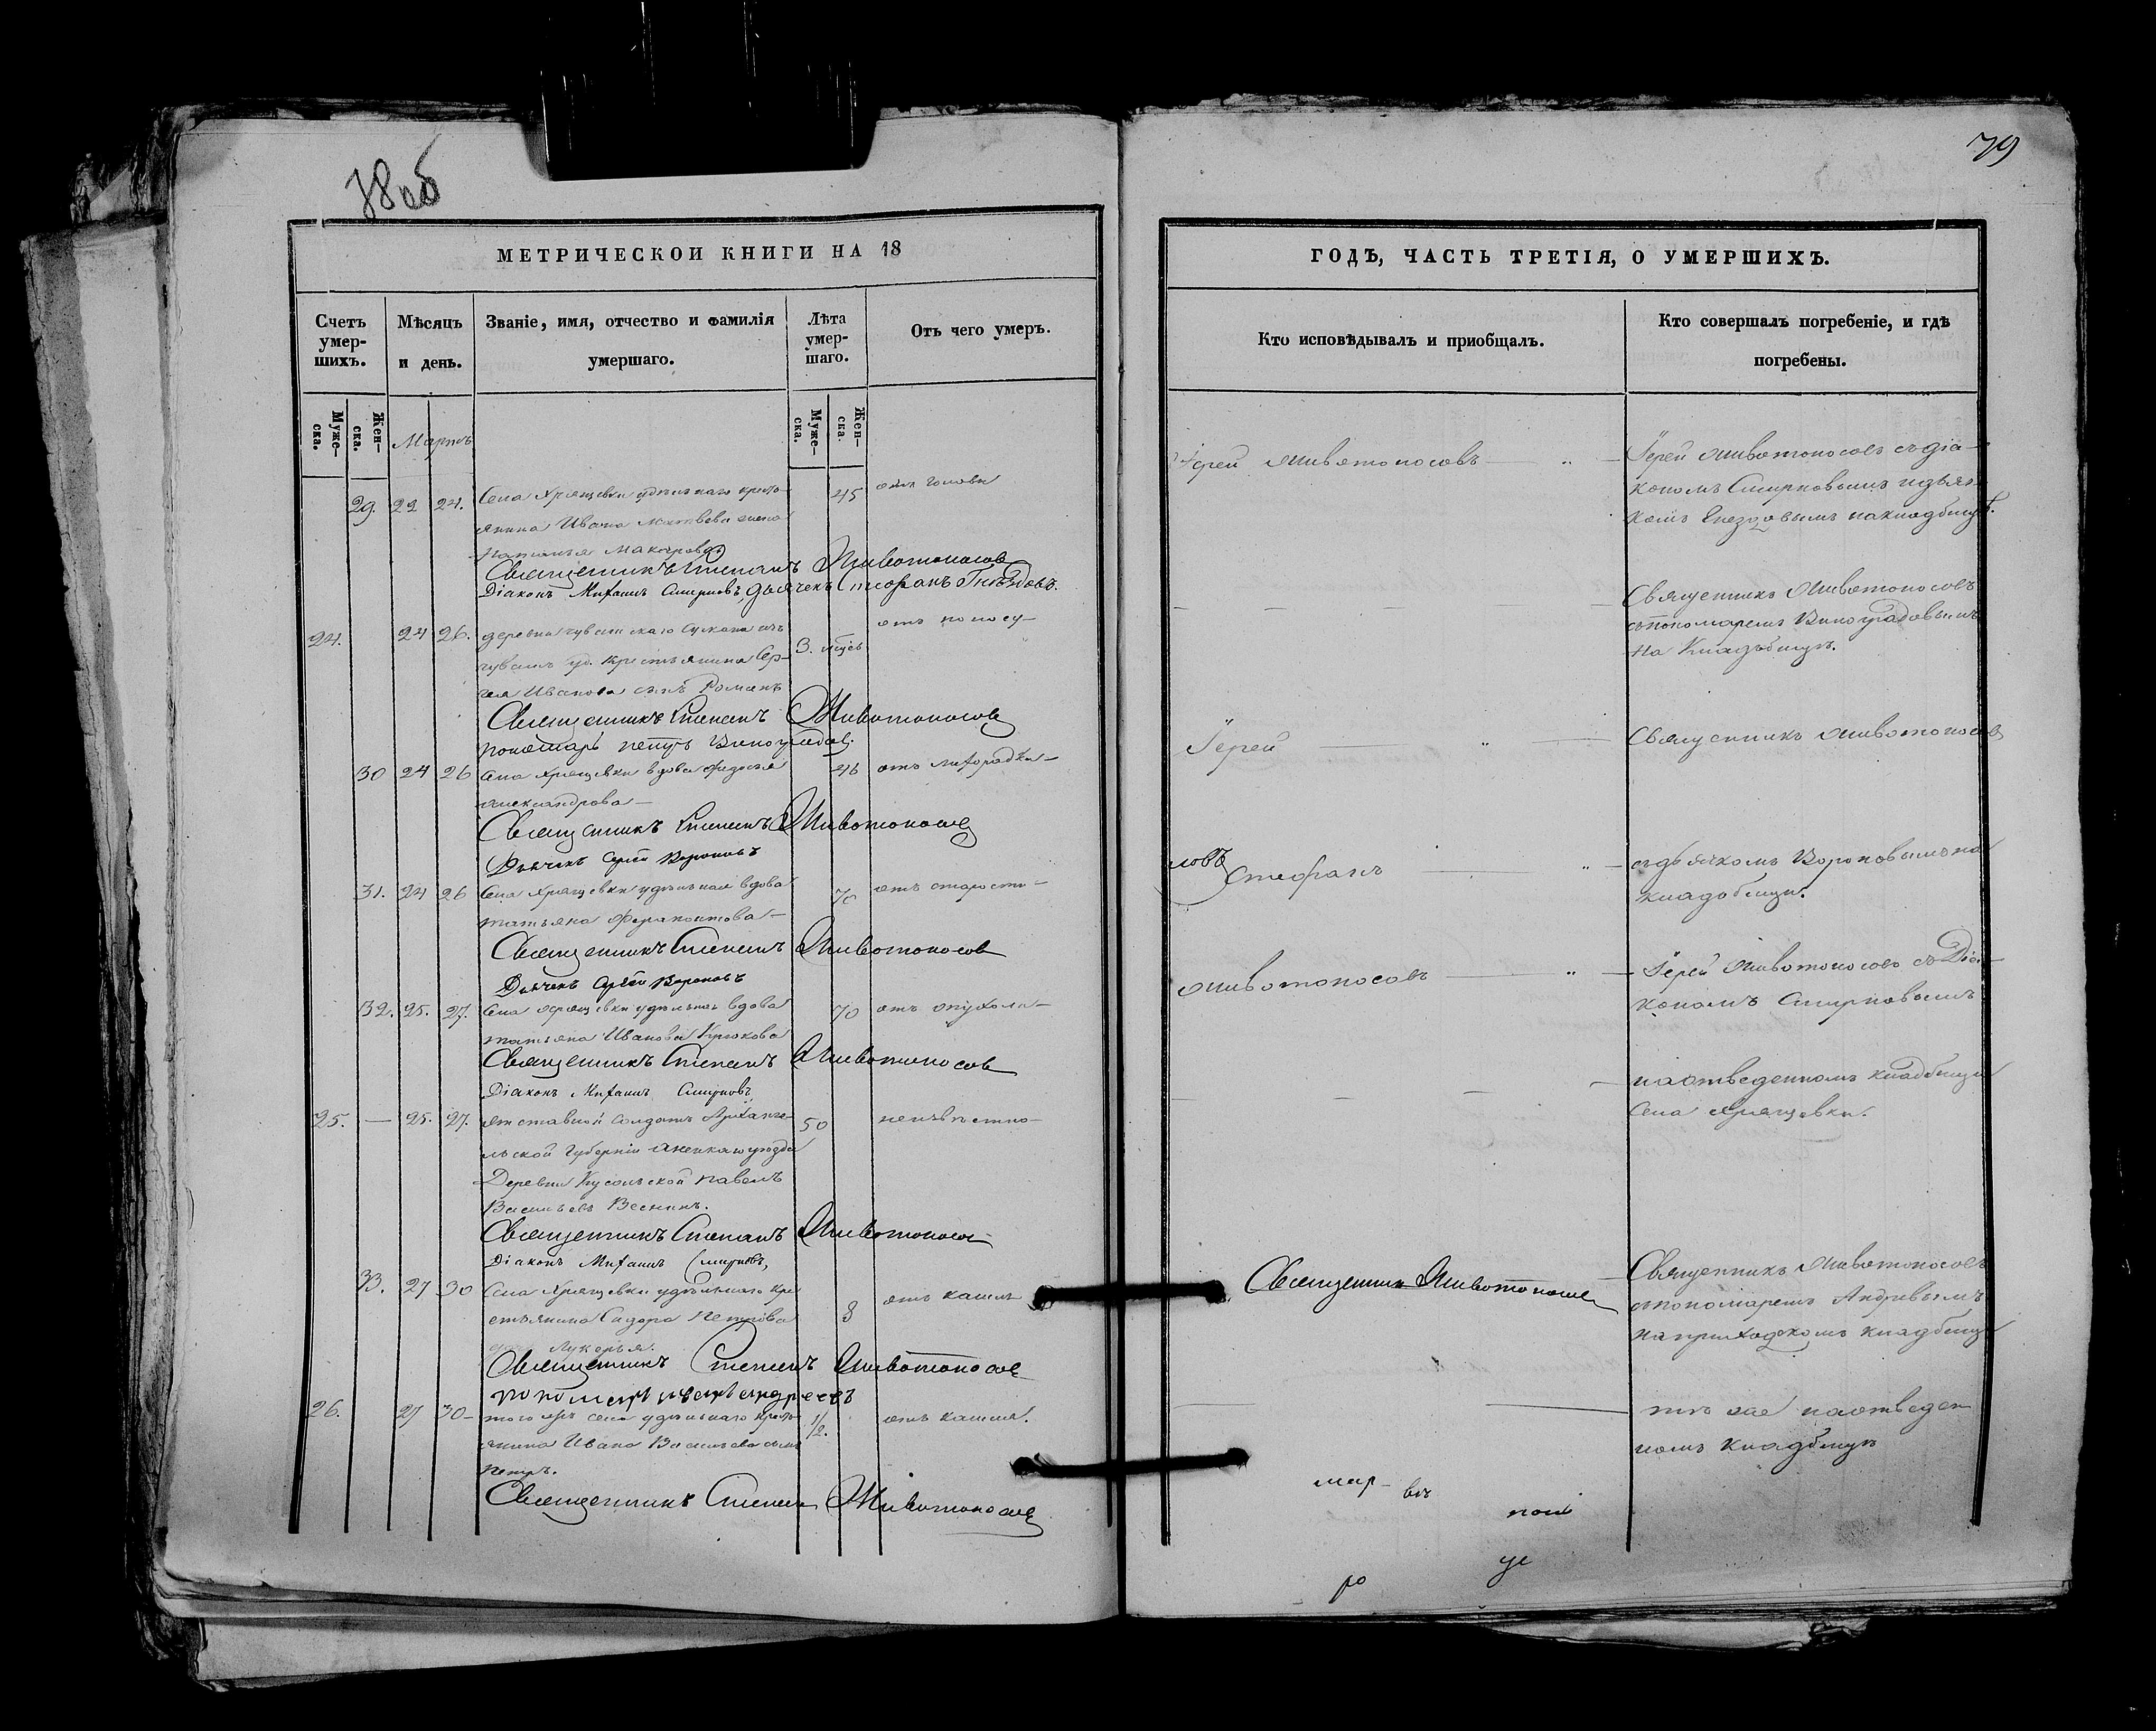 78 об
МЕТРИЧЕСКОЙ КНИГИ НА 18
Счетъ умер-шихъ.
Мѣсяцъ и день.
Званіе, имя, отчество и фамилія умершаго.
Лѣта умер-шаго.
Отъ чего умеръ.
Муже-ска.
Жен-ска.
Муже-ска.
Жен-ска.
Мартъ
29. 22 24. Села Хрящевки удѣльнаго кресть-
янина Ивана Матвѣева жена
45
отъ головы
Священникъ Стефанъ Животоносовъ
Діаконъ Михаилъ Смирновъ, дьячекъ Стефанъ Гнѣздовъ.
24. 24 26.
3. мѣсяц
отъ поносу
чувашъ уд. крестьянина Сер-
гея Иванова сынъ Романъ
Священникъ Стефанъ Животоносовъ
пономарь петръ Виноградовъ.
30 24 26 Села Хрящевки вдова Федосья
46 отъ лихорадки
Александрова
Священникъ Стефанъ Животоносовъ
Дьячекъ Сергѣй Вороновъ
31. 24 26 Села Хрящевки удѣльная вдова
70 отъ старости
татьяна Ферапонтова
Священникъ Стефанъ Животоносовъ
Дьячекъ Сергѣй Вороновъ
32. 25. 27. Села Хрящевки удѣльная вдова
70 отъ опухоли
татьяна Иванова Крюкова
Священникъ Стефанъ Животоносов
Діаконъ Михаилъ Смирновъ
25. — 25. 27. отставной солдатъ Архангe-
50 неизвѣстно
льской губерніи уѣзда
Деревни павелъ
Васильевъ
Священникъ Стефанъ Животоносов
Діаконъ Михаилъ Смирновъ,
33. 27 30 Села Хрящевки удѣльнаго кре
8 отъ кашля
стьянина Сидора Петрова
Лукерья.
Священникъ Стефанъ Животоносов
пономарь андреевъ
26. 27 30 того жъ села удѣльнаго кресть-
1/2. отъ кашля.
янина Ивана Васильева сынъ
петръ.
Священникъ Стефанъ Животоносов
79
ГОДЪ, ЧАСТЬ ТРЕТІЯ, О УМЕРШИХЪ.
Кто исповѣдывалъ и пріобщалъ.
Кто совершалъ погребеніе, и гдѣ погребены.
Іерей Животоносовъ
Іерей Животоносовъ съ діа-
кономъ Смирновымъ и дьяч-
комъ Гнездовымъ на кладбищѣ.
Священникъ Животоносовъ
съ пономаремъ Виноградовымъ
на Кладбищѣ.
Іерей
Священникъ Животоносов
Стефанъ
съ дьячкомъ Вороновымъ на
кладбищѣ.
Животоносовъ
Іерей Животоносовъ съ Діа-
кономъ Смирновымъ
на отведенномъ кладбищѣ
Села Хрящевки.
Священник Животоносов
Священникъ Животоносовъ
съ пономаремъ Андреевымъ
на приходскомъ кладбищѣ
на отведен
номъ кладбищѣ
мар-
въ
ро